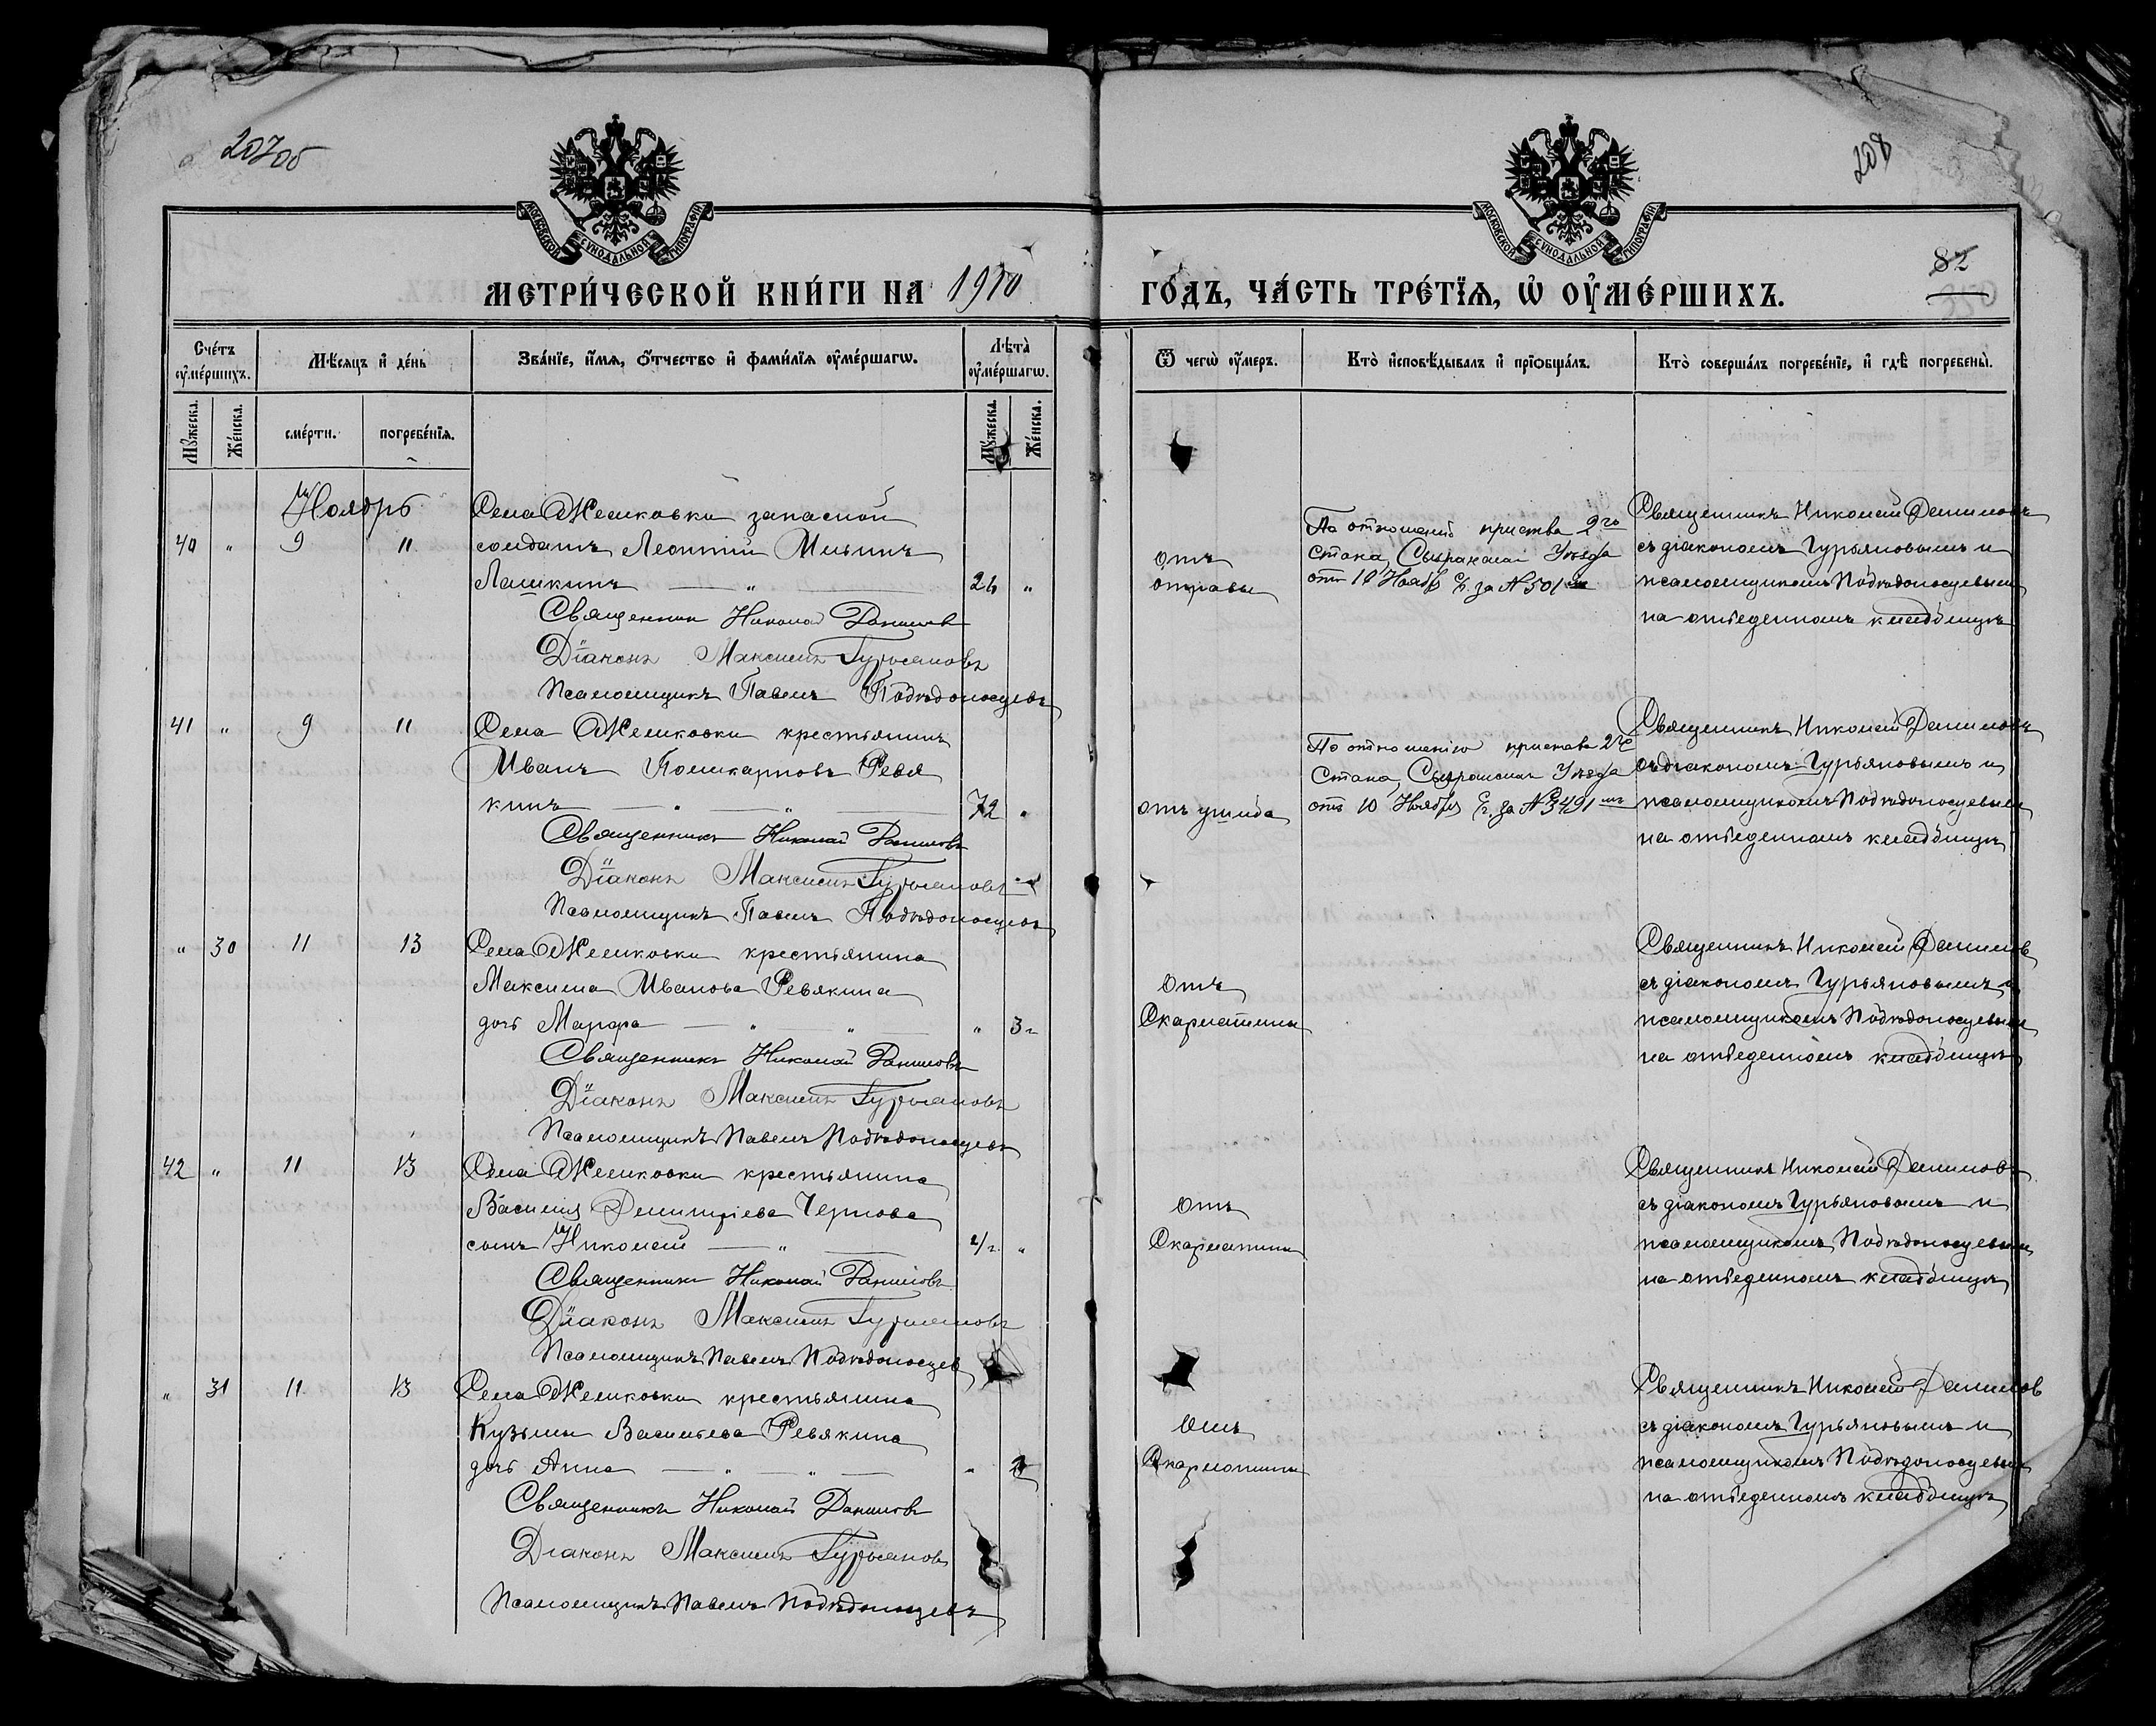 207об
208
МОСКОВСКОЙ СѴНОДАЛЬНОЙ ТИПОГРАФІИ
МОСКОВСКОЙ СѴНОДАЛЬНОЙ ТИПОГРАФІИ
82
МЕТРИ́ЧЕСКОЙ КНИ́ГИ НА 1910 ГО́ДЪ, ЧА́СТЬ ТРЕ́ТЇѦ, Ѡ҆ ОУ҆МЕ́РШИХЪ.
Сче́тъ оу҆ме́ршихъ.
Мѣ́сяцъ и҆ де́нь
Зва́нїе, и҆́мя, ѻ҆́тчество и҆ фами́лїя оу҆ме́ршагѡ.
Лѣ́та оу҆ме́ршагѡ.
Ѿ чегѡ̀ оу҆́меръ.
Кто̀ и҆сповѣ́дывалъ и҆ прїѡбща́лъ.
Кто̀ соверша́лъ погребе́нїе, и҆ гдѣ̀ погребены̀.
Мꙋ́жеска. Же́нска. сме́рти. погребе́нїя. Мꙋ́жеска. Же́нска.
Ноябрь
Села Жемковки запасной
40 " 9 11 солдатъ Леонтій Ильинъ
Лашкинъ — " 26 "
Священник Николай Данилов
Діаконъ Максимъ Гурьяновъ
Псаломщикъ Павелъ Побѣдоносцевъ
отъ
отравы
По отношенію пристава 2го
Стана, Сызранскаго Уѣзда
отъ 10 Ноября с/г. за №
Священникъ Николай Даниловъ
съ діакономъ Гурьяновымъ и
псаломщикомъ Побѣдоносцевым
на отведенномъ кладбищѣ
41 " 9 11 Села Жемковки крестьянинъ
Иванъ Поликарповъ Ревя
кинъ — " — " 72 "
Священникъ Николай Даниловъ
Діаконъ Максимъ Гурьяновъ
Псаломщикъ Павелъ Побѣдоносцевъ
отъ ушиба
По отношенію пристава 2го
Стана, Сызранскаго Уѣзда
отъ 10 Ноября с/г. за № 3491
Священникъ Николай Даниловъ
съ діакономъ Гурьяновымъ и
псаломщикомъ Побѣдоносцевым
на отведенномъ кладбищѣ
" 30 11 13 Села Жемковки крестьянина
Максима Иванова Ревякина
дочь Марфа — " — " — " 3 г.
Священникъ Николай Даниловъ
Діаконъ Максимъ Гурьяновъ
Псаломщикъ Павелъ Побѣдоносцевъ
Отъ
Скарлатины
Священникъ Николай Данилов
съ діакономъ Гурьяновымъ и
псаломщикомъ Побѣдоносцевым
на отведенномъ кладбищѣ
42 " 11 13 Села Жемковки крестьянина
Василія Димитріева Чернова
сынъ Николай — " — "
Священникъ Николай Даниловъ
Діаконъ Максимъ Гурьяновъ
Псаломщикъ Павелъ Побѣдоносцев
Отъ
Скарлатины
Священникъ Николай Данилов
съ діакономъ Гурьяновымъ и
псаломщикомъ Побѣдоносцевым
на отведенномъ кладбищѣ
" 31 11 13 Села Жемковки крестьянина
Кузьмы Васильева Ревякина
дочь Анна — " — " — "
Священникъ Николай Даниловъ
Діаконъ Максимъ Гурьяновъ
Псаломщикъ Павелъ Побѣдоносцевъ
Отъ
Скарлатины
Священникъ Николай Данилов
съ діакономъ Гурьяновымъ и
псаломщикомъ Побѣдоносцевым
на отведенномъ кладбищѣ